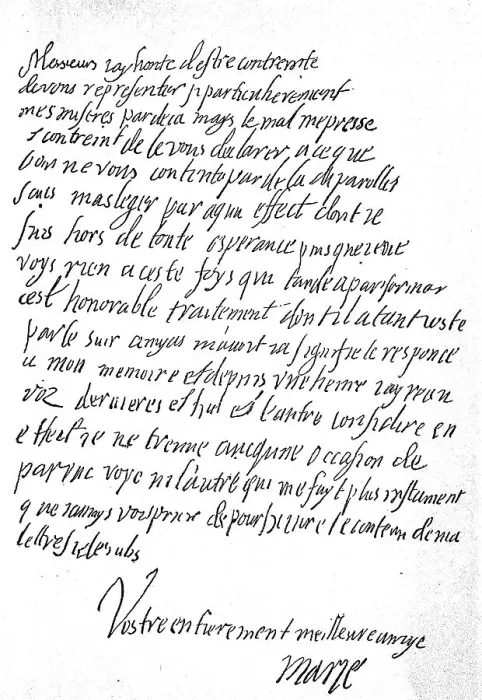 Messieurs iay honte destre contreinte
de vous representer si particulierement
mes miseres par deca mays le mal me presse
contreint de le vous declarer a ce que
lon ne vous contente par de la de parolles
sans masleger par aqun effect dont ie
suis hors de toute esperance puis que ie ne
voys rien a ceste foys qui tande a parformer
cest honorable traitement dont il a tant
par le sieur ia signifie le responce
a mon memoire et depuis une heure iay receu
voz dernieres et lun et lautre considere en
effect ie ne treuve aucqune occasion de
par une voye ni lautre qui me fayt plus instament
que iamays vous prier de poursuivre le contenu de ma
lettre si desubs
Vostre entierement meilleure amye
Marie